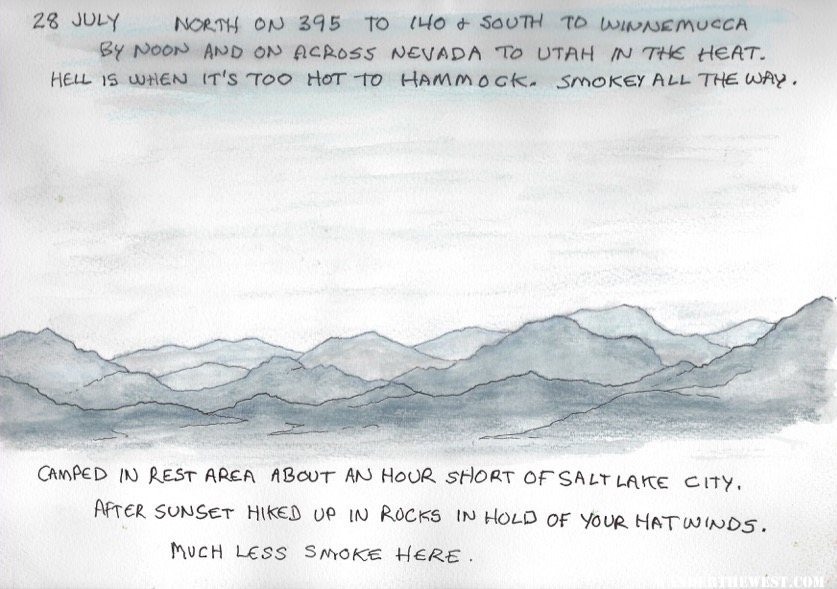 28 JULY NORTH ON 395 TO 140 & SOUTH TO WINNEMUCCA
BY NOON AND ON ACROSS NEVADA TO UTAH IN THE HEAT.
HELL IS WHEN IT'S TOO HOT TO HAMMOCK. SMOKEY ALL THE WAY.
CAMPED IN REST AREA ABOUT AN HOUR SHORT OF SALT LAKE CITY.
AFTER SUNSET HIKED UP IN ROCKS IN HOLD OF YOUR HAT WINDS.
MUCH LESS SMOKE HERE.
WANDERTHEWEST.COM